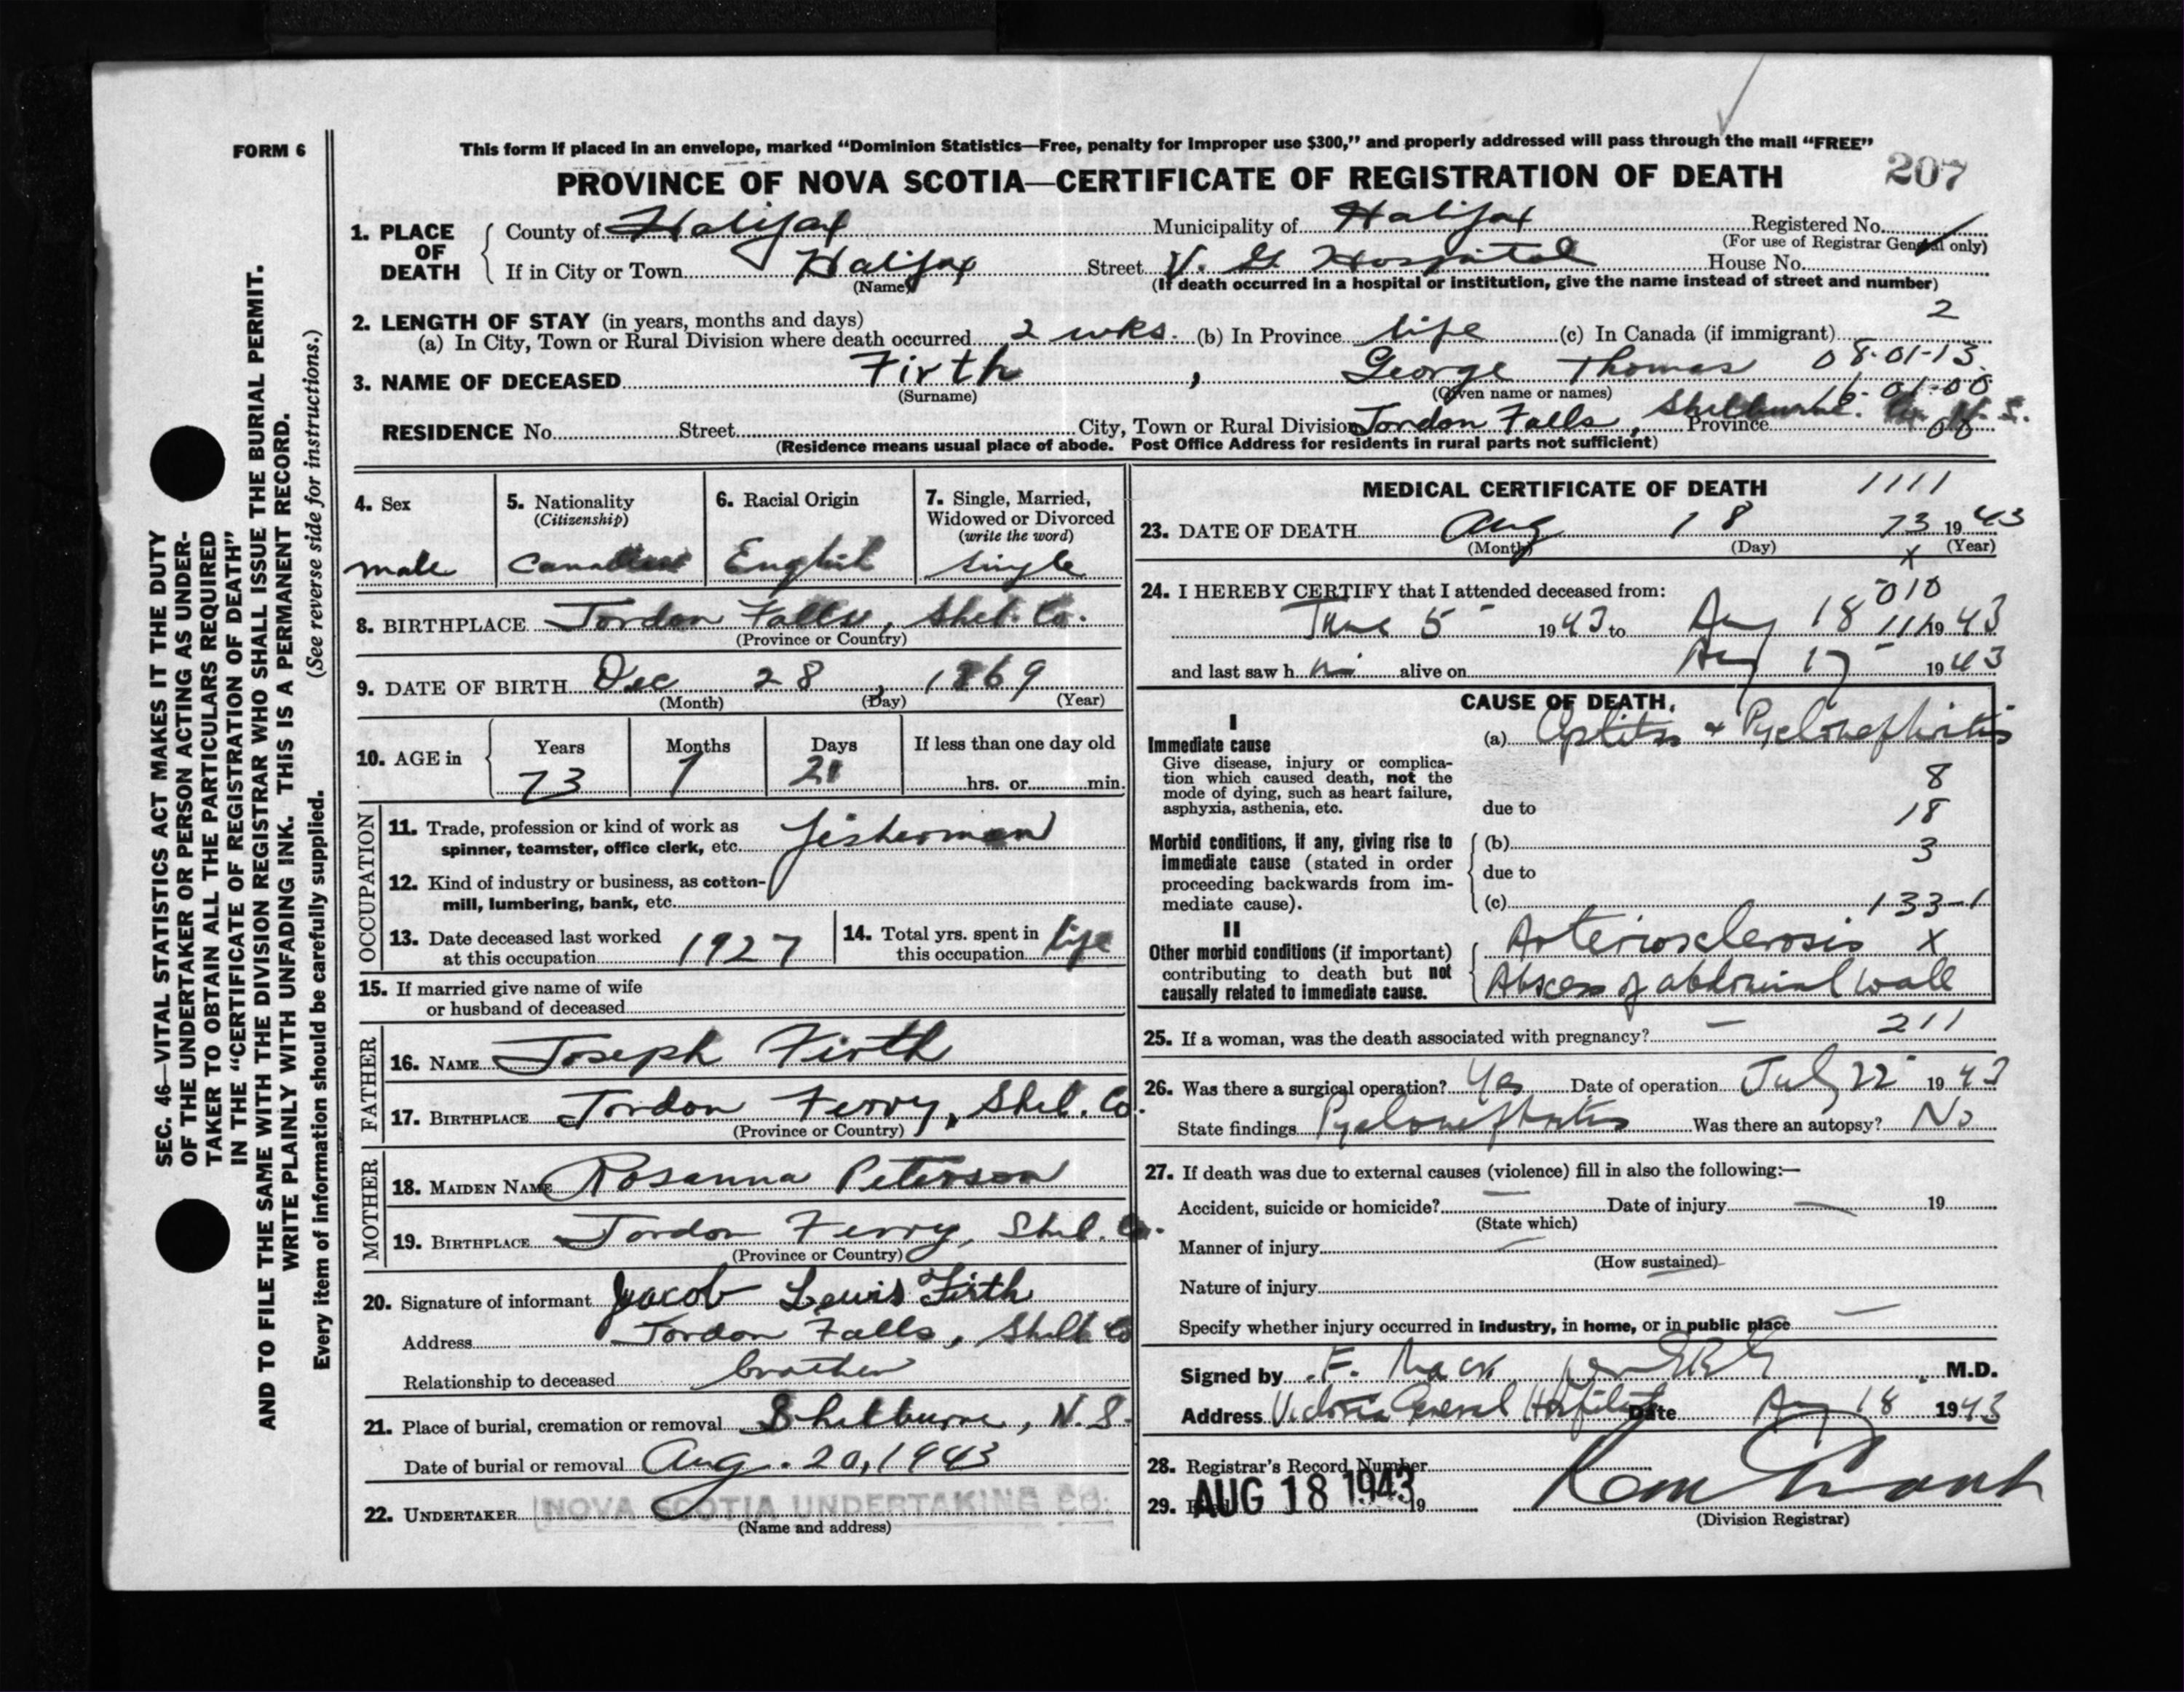 FORM 6
This form if placed in an envelope, marked “Dominion Statistics—Free, penalty for improper use $300,” and properly addressed will pass through the mail “FREE”
PROVINCE OF NOVA SCOTIA—CERTIFICATE OF REGISTRATION OF DEATH 207
1. PLACE OF DEATH County of Halifax Municipality of Halifax Registered No.
(For use of Registrar General only)
If in City or Town Halifax Street V. G Hospital House No.
(Name) (If death occurred in a hospital or institution, give the name instead of street and number)
2. LENGTH OF STAY (in years, months and days) 2
(a) In City, Town or Rural Division where death occurred 2 wks. (b) In Province life (c) In Canada (if immigrant)
3. NAME OF DECEASED Firth , George Thomas 08-01-13
(Surname) (Given name or names) 16-01-00
RESIDENCE No. Street City, Town or Rural Division Jordon Falls, Shelburne. Province 08
(Residence means usual place of abode. Post Office Address for residents in rural parts not sufficient)
4. Sex male
5. Nationality (Citizenship) Canadian
6. Racial Origin English
7. Single, Married, Widowed or Divorced (write the word) single
8. BIRTHPLACE Jordon Falls, Shel. Co.
(Province or Country)
9. DATE OF BIRTH Dec 28, 1869
(Month) (Day) (Year)
10. AGE in Years Months Days If less than one day old
73 7 21 hrs. or min.
OCCUPATION
11. Trade, profession or kind of work as
spinner, teamster, office clerk, etc. fisherman
12. Kind of industry or business, as cotton-
mill, lumbering, bank, etc.
13. Date deceased last worked
at this occupation 1927
14. Total yrs. spent in
this occupation life
15. If married give name of wife
or husband of deceased
FATHER
16. NAME Joseph Firth
17. BIRTHPLACE Jordon Ferry, Shel. Co.
(Province or Country)
MOTHER
18. MAIDEN NAME Rosanna Peterson
19. BIRTHPLACE Jordon Ferry, Shel. Co.
(Province or Country)
20. Signature of informant Jacob Lewis Firth
Address Jordon Falls, Shelb Co
Relationship to deceased brother
21. Place of burial, cremation or removal Shelburne, N.S.
Date of burial or removal Aug. 20, 1943
22. UNDERTAKER NOVA SCOTIA UNDERTAKING CO.
(Name and address)
MEDICAL CERTIFICATE OF DEATH 1111
23. DATE OF DEATH Aug 18 73 1943
(Month) (Day) x (Year)
24. I HEREBY CERTIFY that I attended deceased from: 010
June 5 1943 to Aug 18 111 1943
and last saw h alive on Aug 17 1943
CAUSE OF DEATH.
I
Immediate cause (a) Cystitis & Pyelonephritis
Give disease, injury or complica-
tion which caused death, not the 8
mode of dying, such as heart failure,
asphyxia, asthenia, etc. due to 18
Morbid conditions, if any, giving rise to (b) 3
immediate cause (stated in order
proceeding backwards from im- due to
mediate cause). (c) 133-1
II
Other morbid conditions (if important) Arteriosclerosis x
contributing to death but not
causally related to immediate cause. Abscess of abdominal wall
25. If a woman, was the death associated with pregnancy? — 211
26. Was there a surgical operation? Yes Date of operation July 22 1943
State findings Pyelonephritis Was there an autopsy? No
27. If death was due to external causes (violence) fill in also the following:—
Accident, suicide or homicide? — Date of injury — 19
(State which)
Manner of injury —
(How sustained)
Nature of injury
Specify whether injury occurred in industry, in home, or in public place —
Signed by F. Mack M.D.
Address Victoria General Hospital Date Aug 18 1943
28. Registrar's Record Number
29. AUG 18 1943 19
(Division Registrar)
SEC. 46—VITAL STATISTICS ACT MAKES IT THE DUTY
OF THE UNDERTAKER OR PERSON ACTING AS UNDER-
TAKER TO OBTAIN ALL THE PARTICULARS REQUIRED
IN THE “CERTIFICATE OF REGISTRATION OF DEATH”
AND TO FILE THE SAME WITH THE DIVISION REGISTRAR WHO SHALL ISSUE THE BURIAL PERMIT.
WRITE PLAINLY WITH UNFADING INK. THIS IS A PERMANENT RECORD.
Every item of information should be carefully supplied. (See reverse side for instructions.)